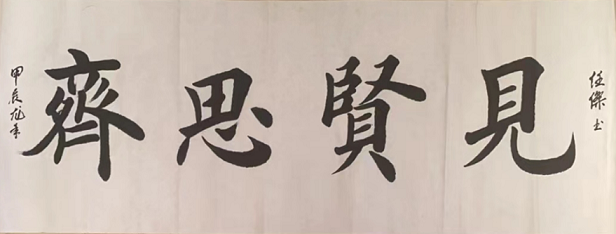 見賢思齊
任傑书
甲辰龙年